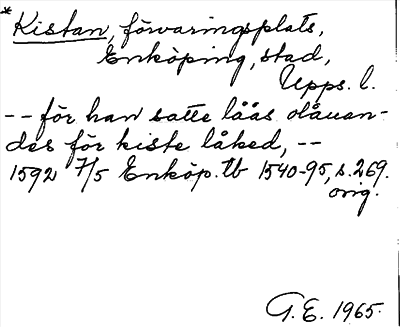 *Kistan, förvaringsplats,
Enköping, stad,
Upps. l.
-- för han satte låås olåuan-
des för kiste låked, --
1592 7/5 Enköp. tb 1540-95, s. 269.
orig.
G. E. 1965.